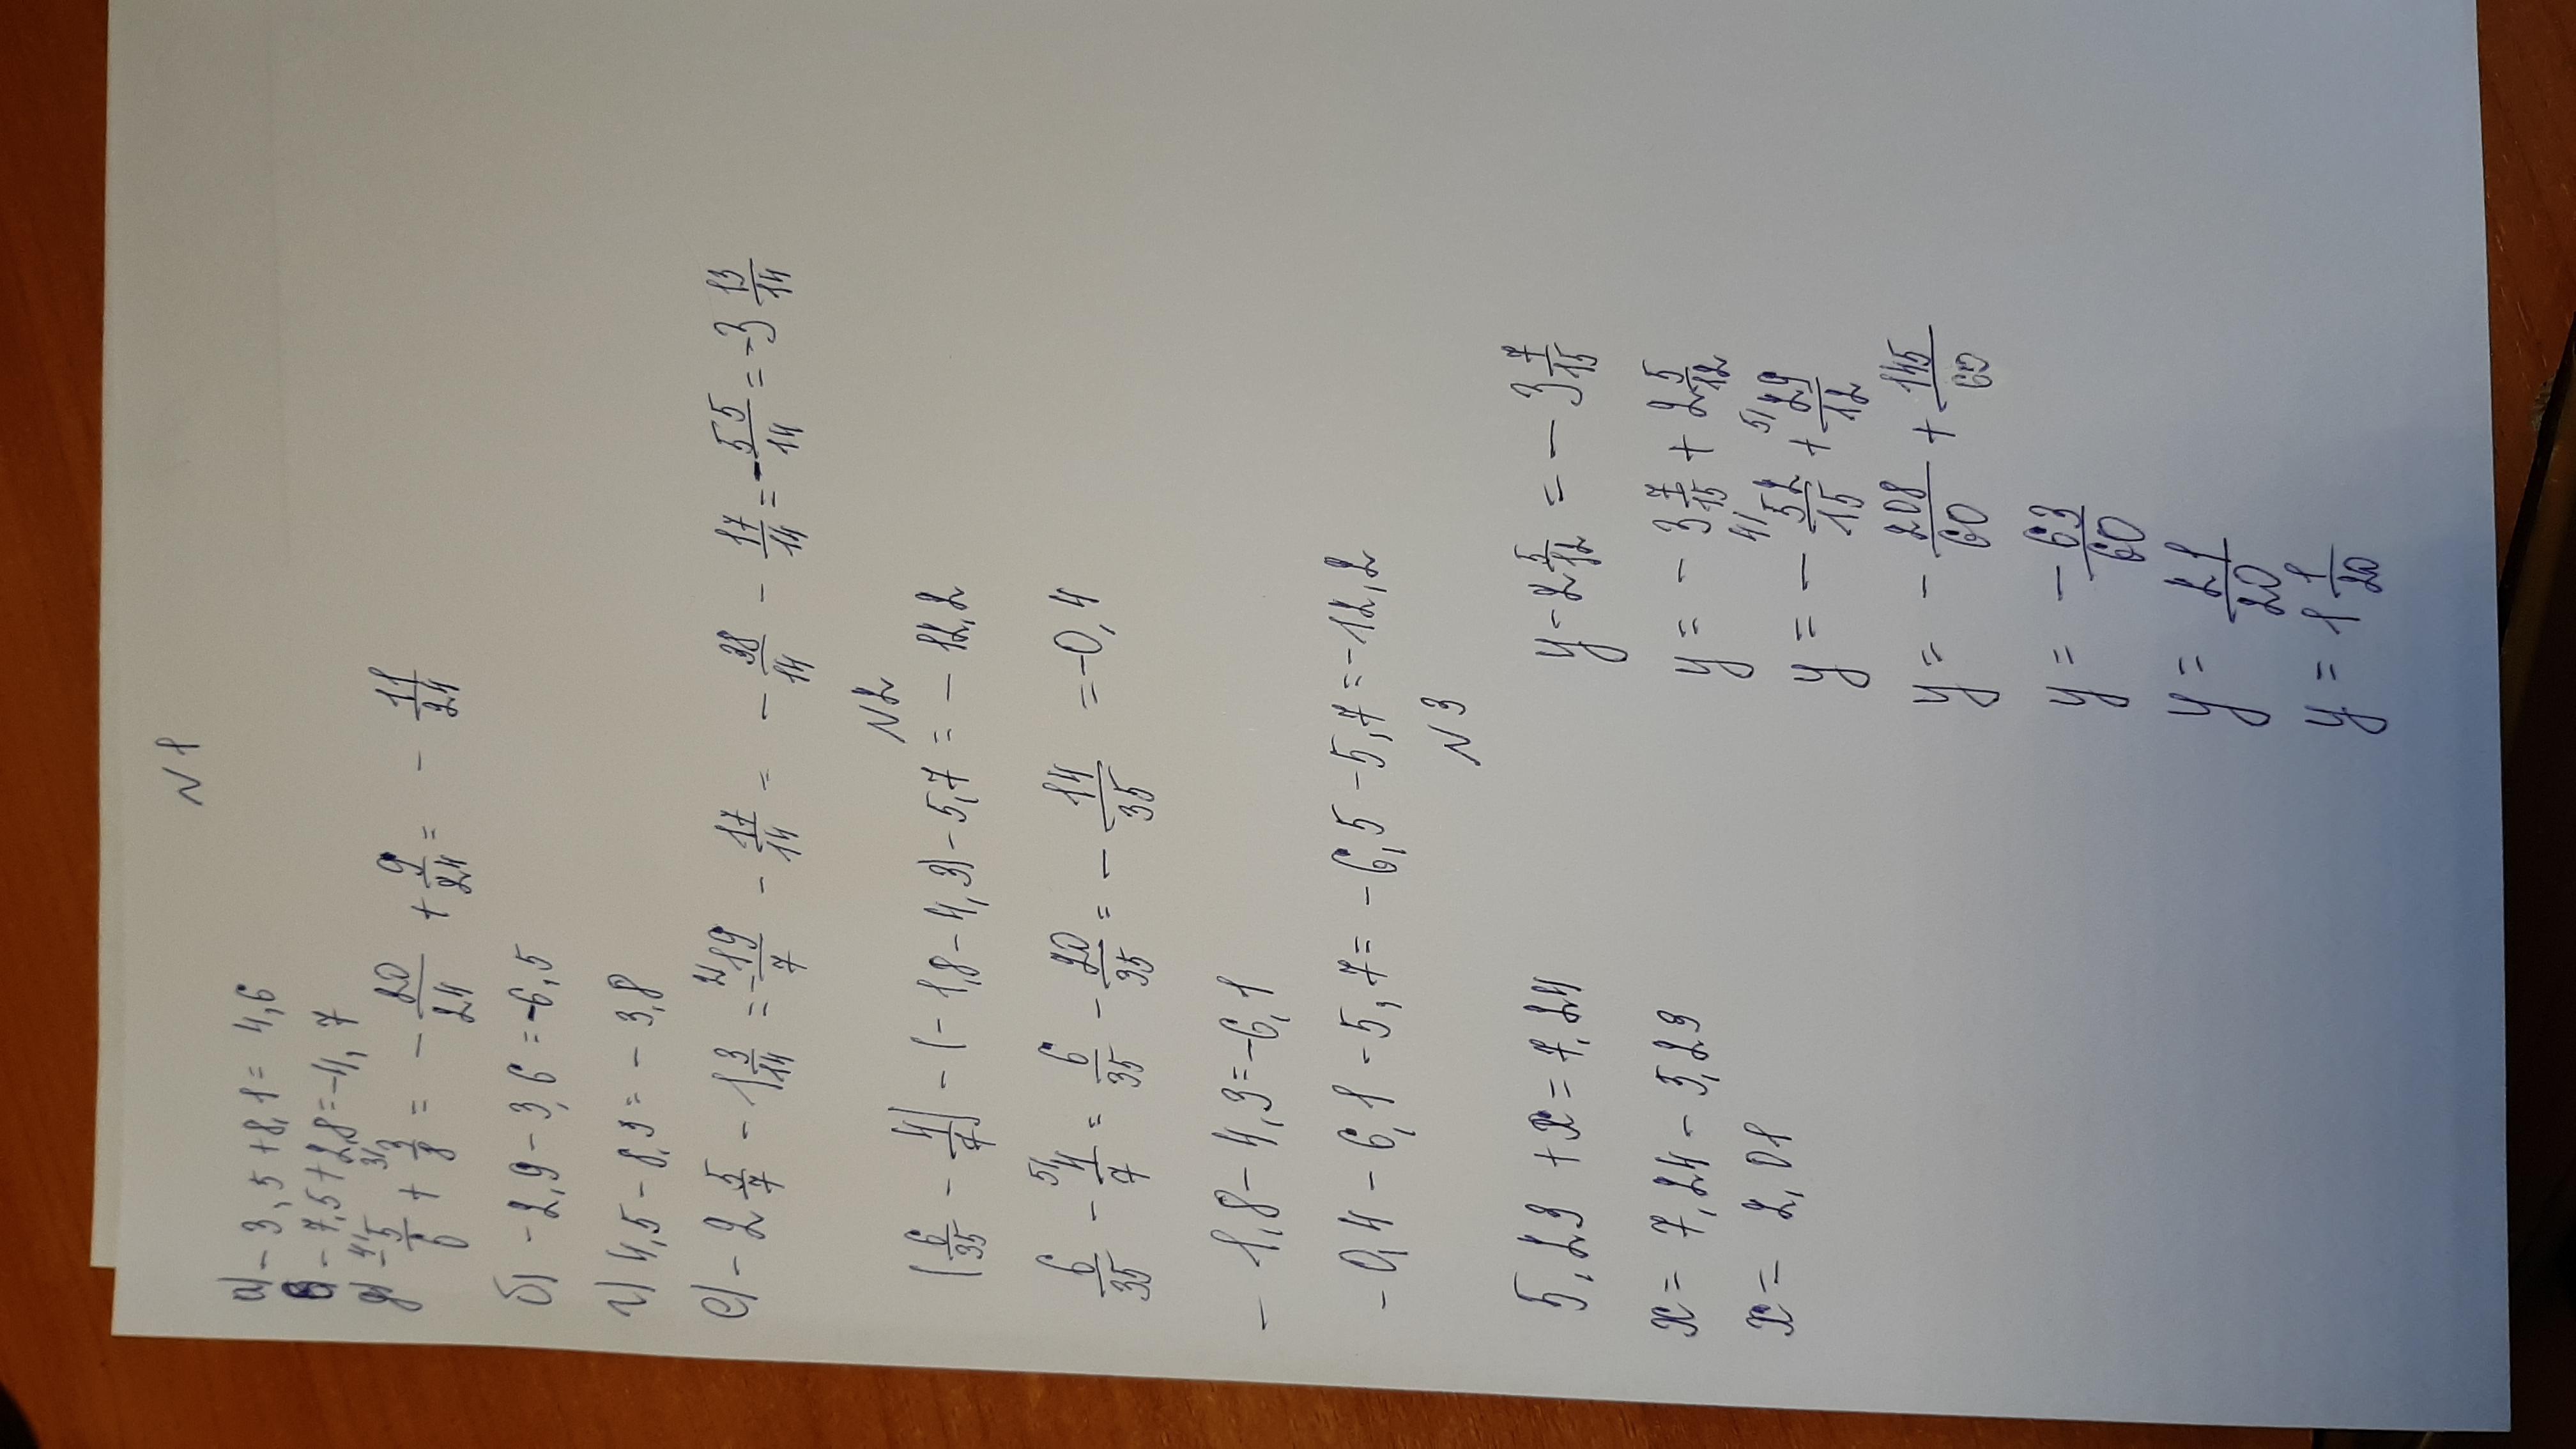 N 1
а) - 3,5 + 8,1 = 4,6
в) - 7,5 + 2,8 = -4,7
д) 4/ - 5/6 + 3/ 3/8 = - 20/24 + 9/24 = - 11/24
б) - 2,9 - 3,6 = -6,5
г) 4,5 - 8,3 = - 3,8
е) - 2 5/7 - 1 3/14 = 2/ -19/7 - 17/14 = - 38/14 - 17/14 = - 55/14 = -3 13/14
N 2
(6/35 - 4/7) - (- 1,8 - 4,3) - 5,7 = - 12,2
6/35 - 5/ 4/7 = 6/35 - 20/35 = - 14/35 = -0,4
- 1,8 - 4,3 = -6,1
- 0,4 - 6,1 - 5,7 = - 6,5 - 5,7 = -12,2
N 3
5,23 + x = 7,24
x = 7,24 - 5,23
x = 2,01
y - 2 5/12 = - 3 7/15
y = - 3 7/15 + 2 5/12
y = - 4/ 52/15 + 5/ 29/12
y = - 208/60 + 145/60
y = - 63/60
y = 21/20
y = 1 1/20